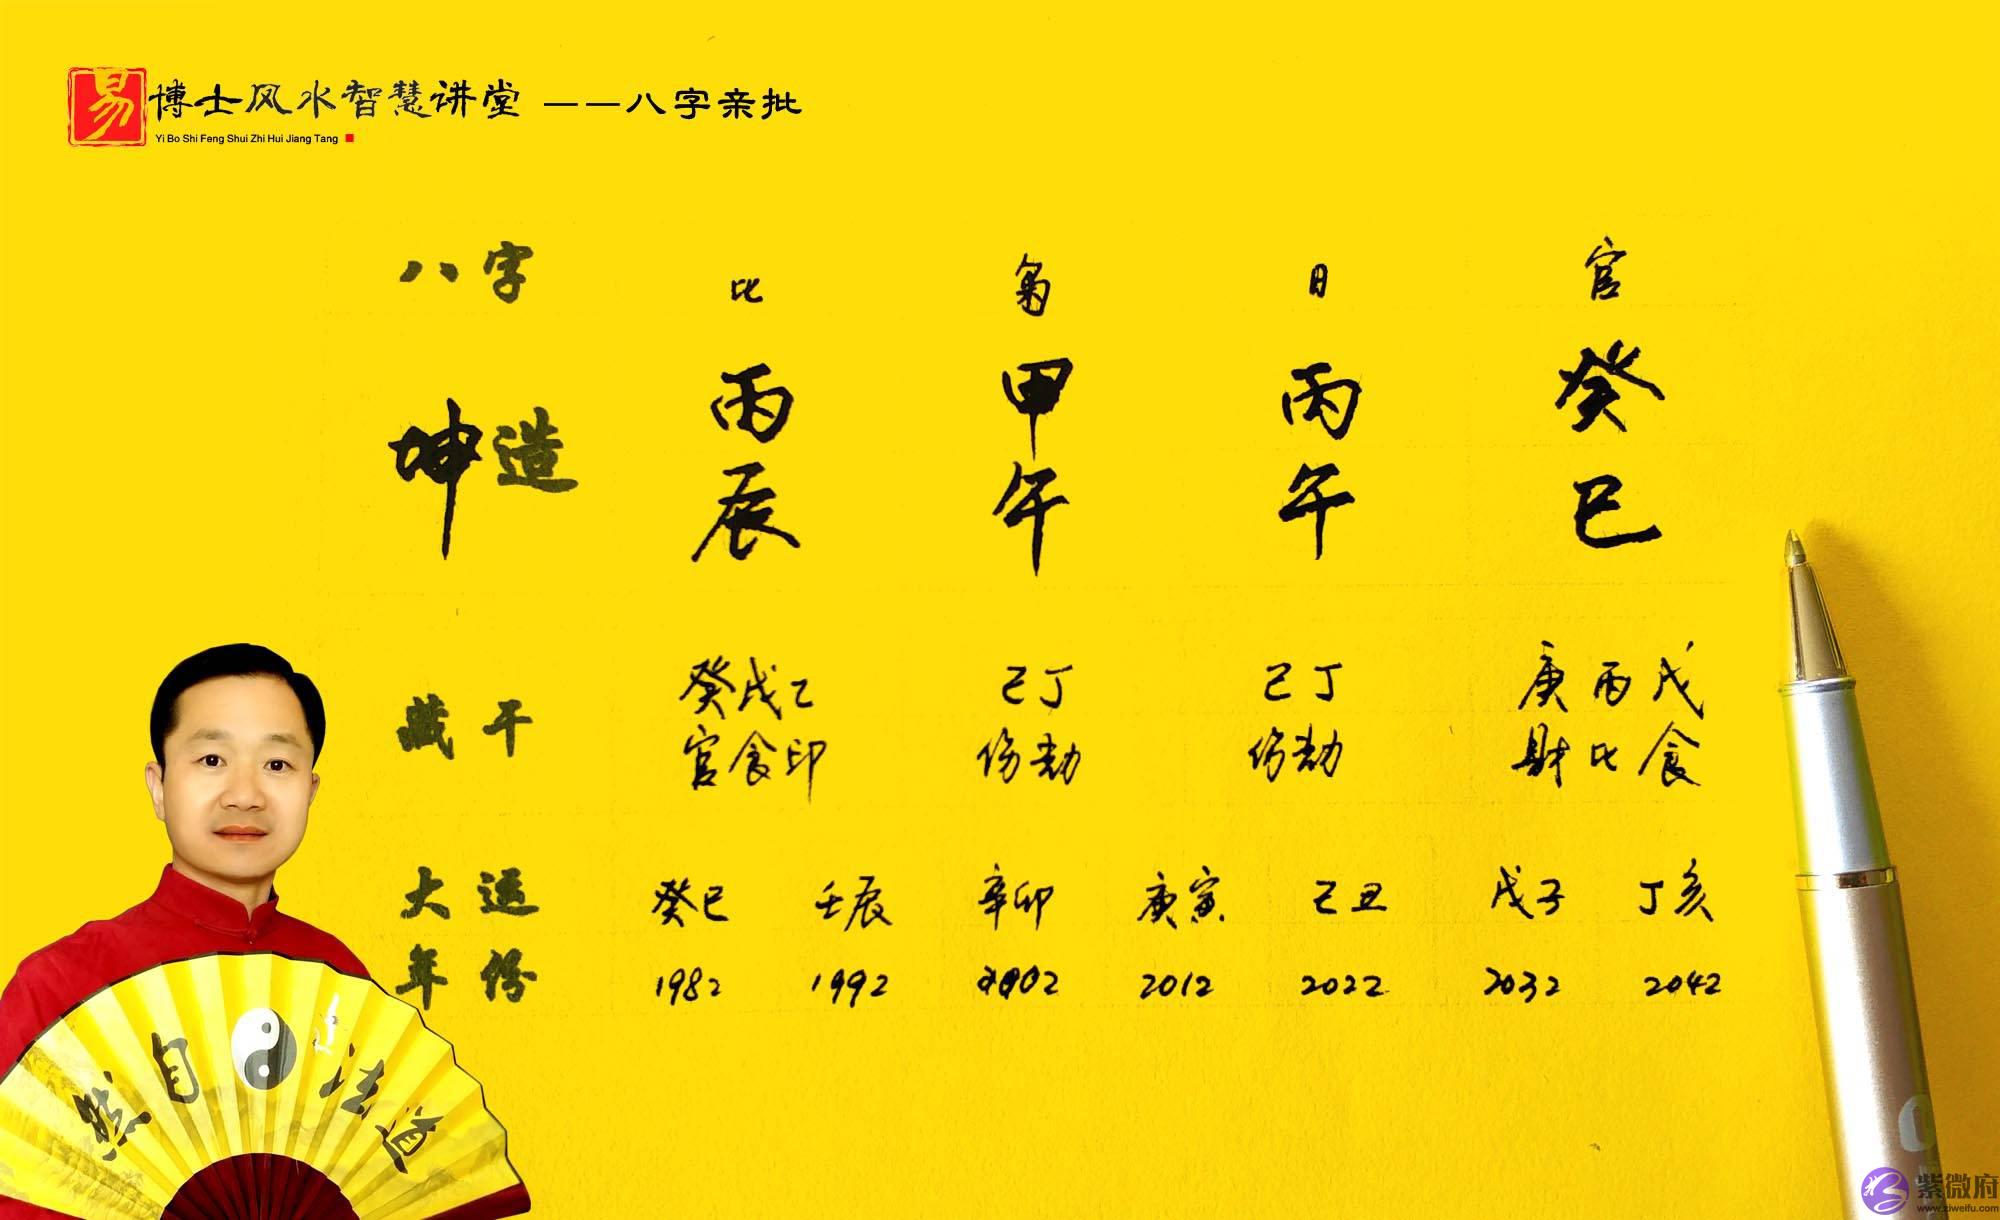 易博士风水智慧讲堂 ——八字亲批
Yi Bo Shi Feng Shui Zhi Hui Jiang Tang
八字 比 枭 日 官
坤造 丙辰 甲午 丙午 癸巳
藏干 癸戊乙 己丁 己丁 庚丙戊
官食印 伤劫 伤劫 财比食
大运 癸巳 壬辰 辛卯 庚寅 己丑 戊子 丁亥
年份 1982 1992 2002 2012 2022 2032 2042
道法自然
紫微府
www.ziweifu.com